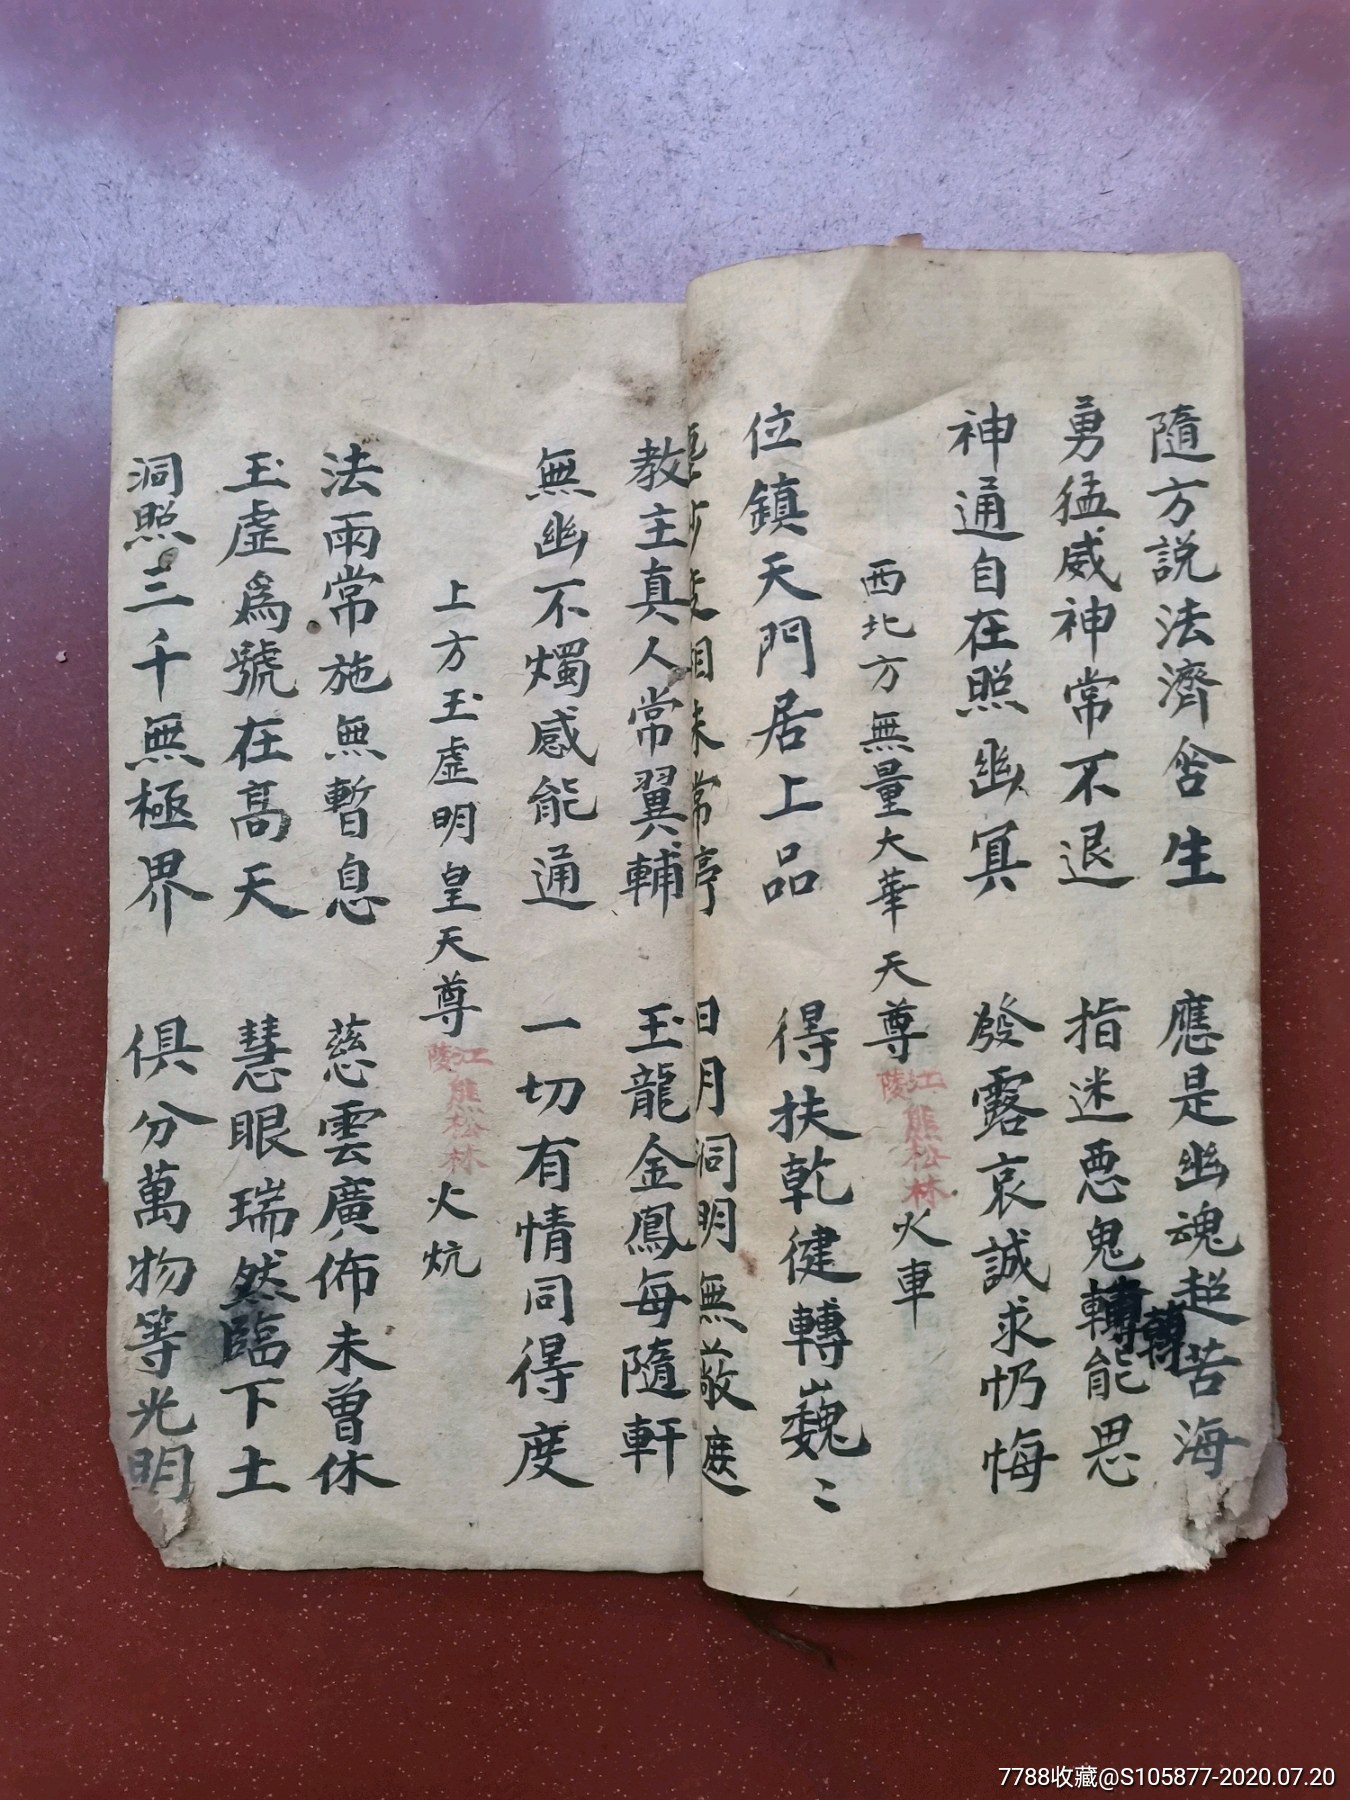 隨方説法濟含生　應是幽魂超苦海
勇猛威神常不退　指迷惡鬼轉能思
轉
神通自在照幽冥　發露哀誠求忏悔
西北方無量大華天尊
江陵熊松林
火車
位鎮天門居上品　得扶乾健轉巍〻
相未常停　日月洞明無
教主真人常翼輔　玉龍金鳳每隨軒
無幽不燭感能通　一切有情同得度
上方玉虛明皇天尊
江陵熊松林
火炕
法雨常施無暫息　慈雲廣佈未曾休
玉虛爲號在高天　慧眼瑞然臨下土
洞照三千無極界　俱分萬物等光明
7788收藏@S105877-2020.07.20